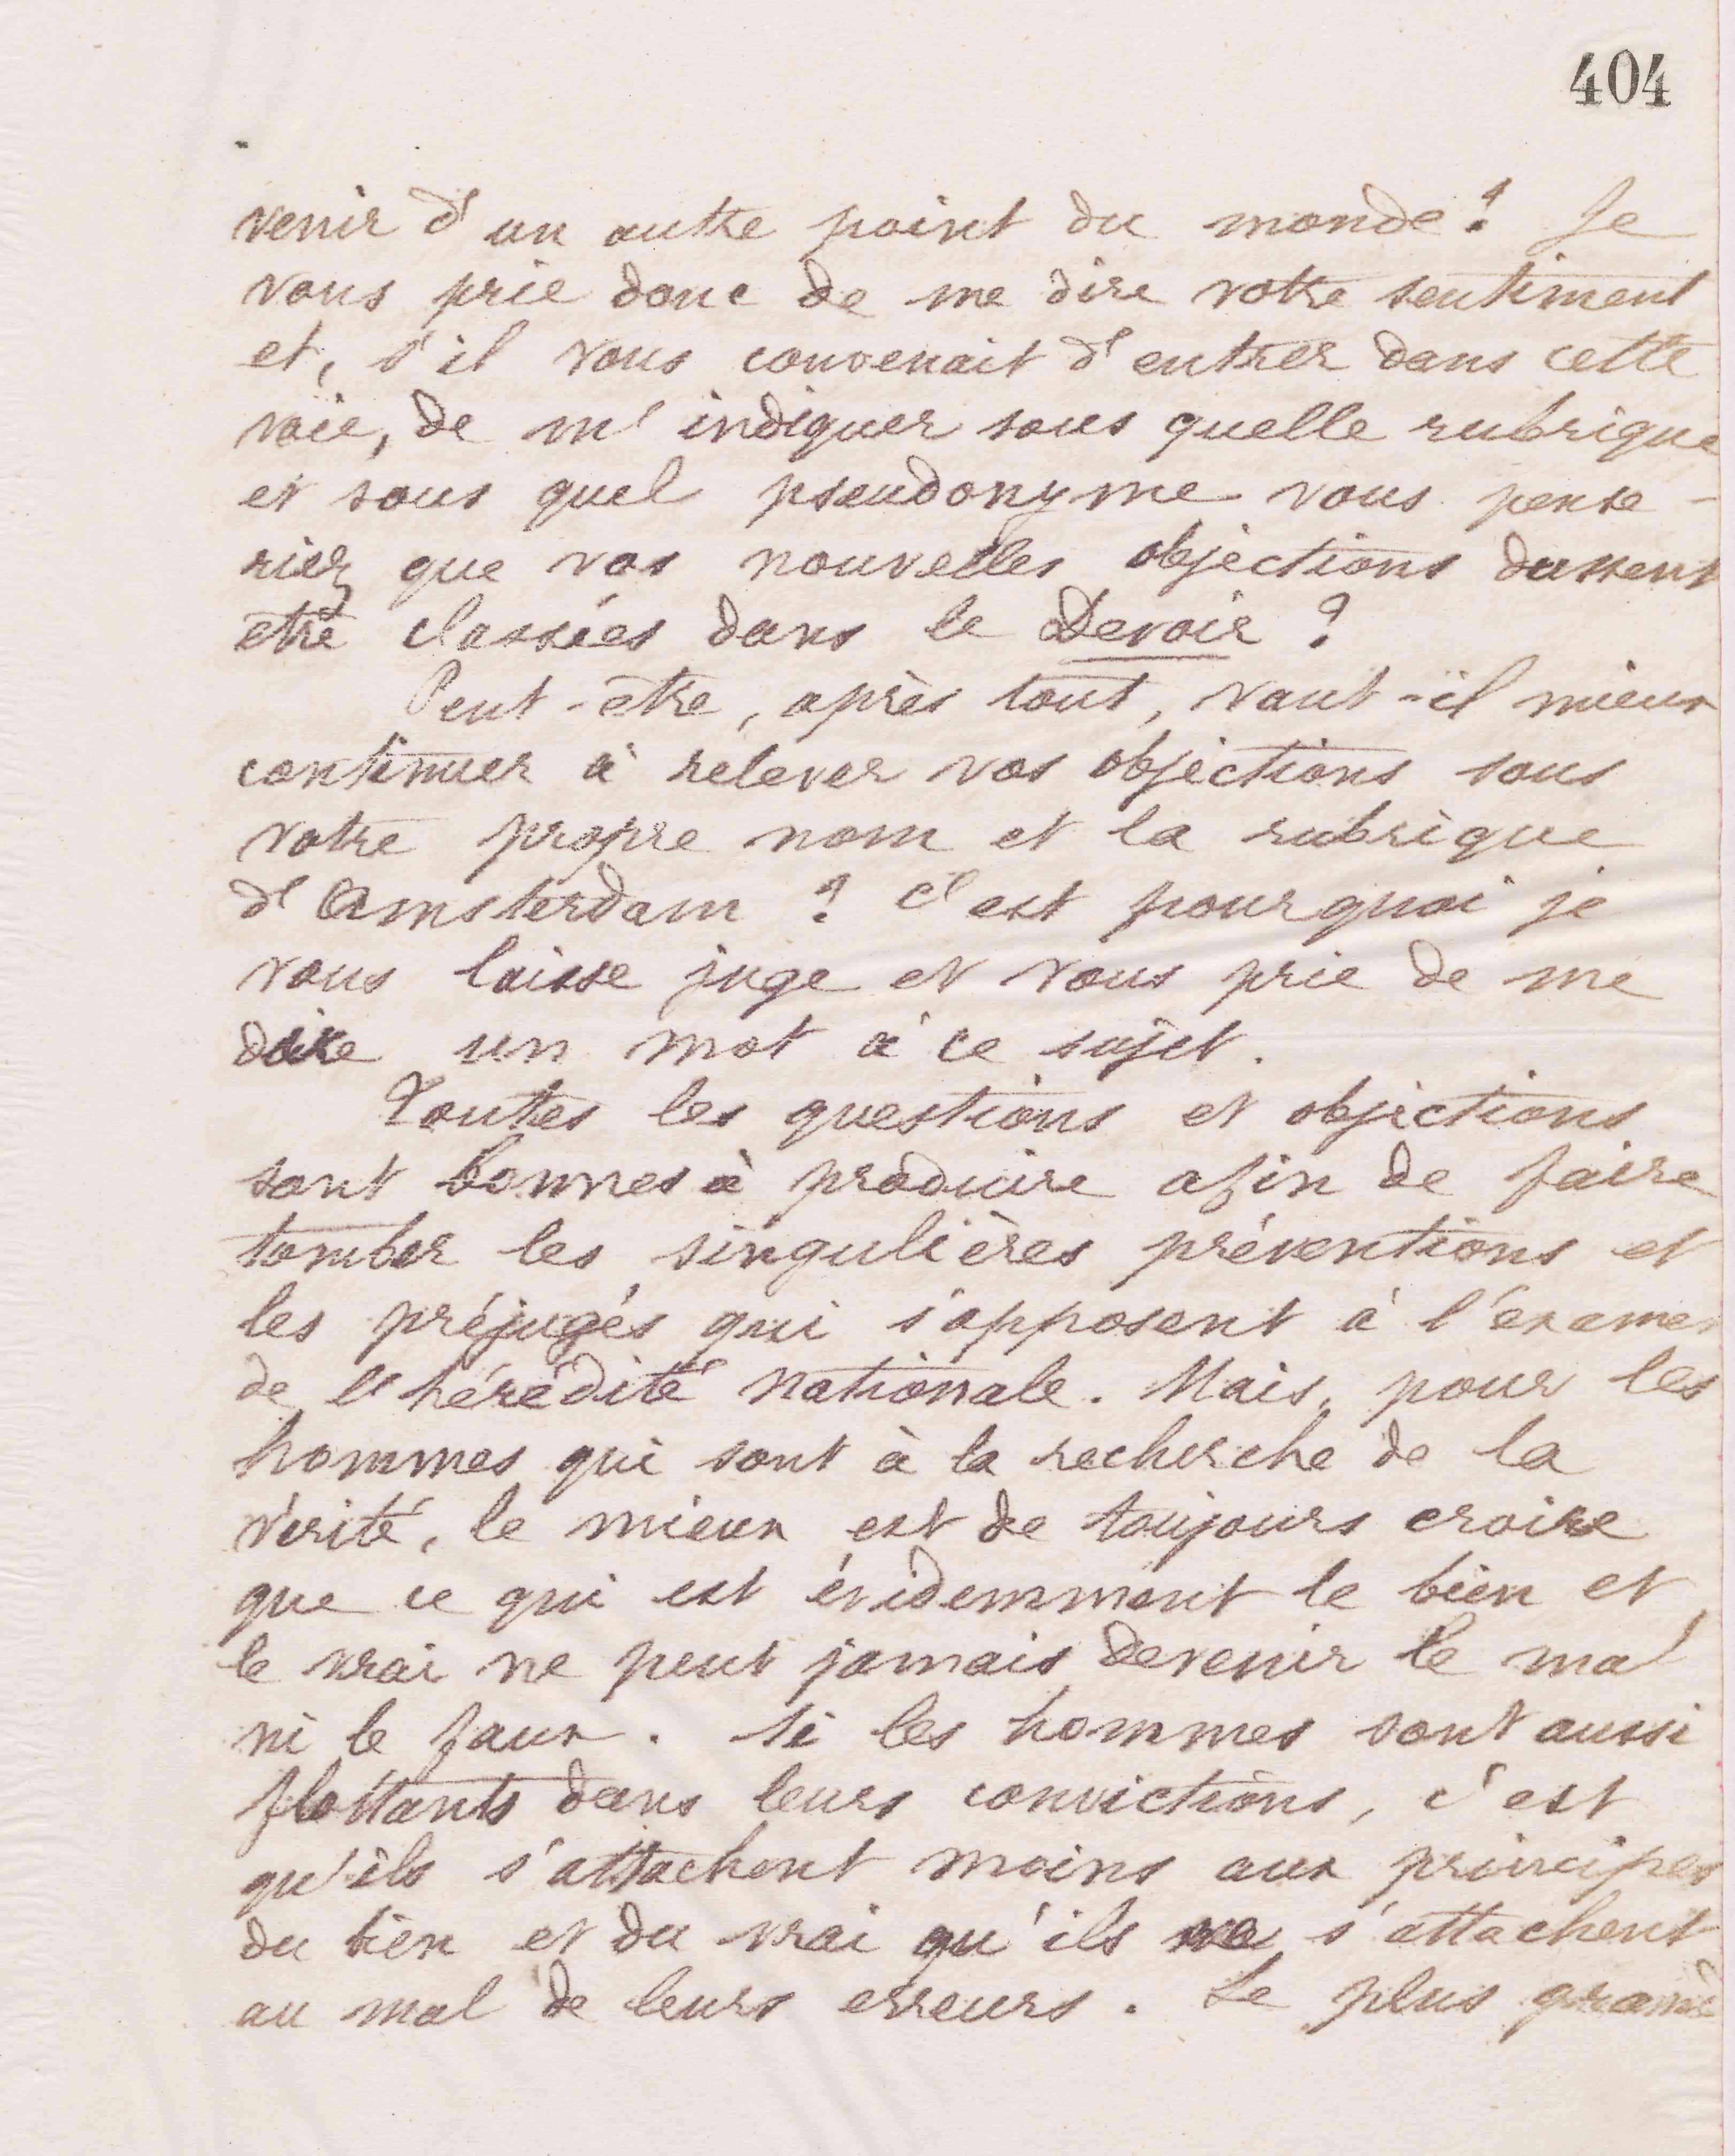 404
venir d'un autre point du monde ? Je
vous prie donc de me dire votre sentiment
et, s'il vous convenait d'entrer dans cette
voie, de m'indiquer sous quelle rubrique
et sous quel pseudonyme vous pense-
riez que vos nouvelles objections dussent
être classées dans le Devoir ?
Peut-être, après tout, vaut-il mieux
continuer à relever vos objections sous
votre propre nom et la rubrique
d'Amsterdam ? C'est pourquoi je
vous laisse juge et vous prie de me
dire un mot à ce sujet.
Toutes les questions et objections
sont bonnes à produire afin de faire
tomber les singulières préventions et
les préjugés qui s'opposent à l'examen
de l'hérédité nationale. Mais, pour les
hommes qui sont à la recherche de la
vérité, le mieux est de toujours croire
que ce qui est évidemment le bien et
le vrai ne peut jamais devenir le mal
ni le faux. Si les hommes sont aussi
flottants dans leurs convictions, c'est
qu'ils s'attachent moins aux principes
du bien et du vrai qu'ils ne s'attachent
au mal de leurs erreurs. Le plus grand